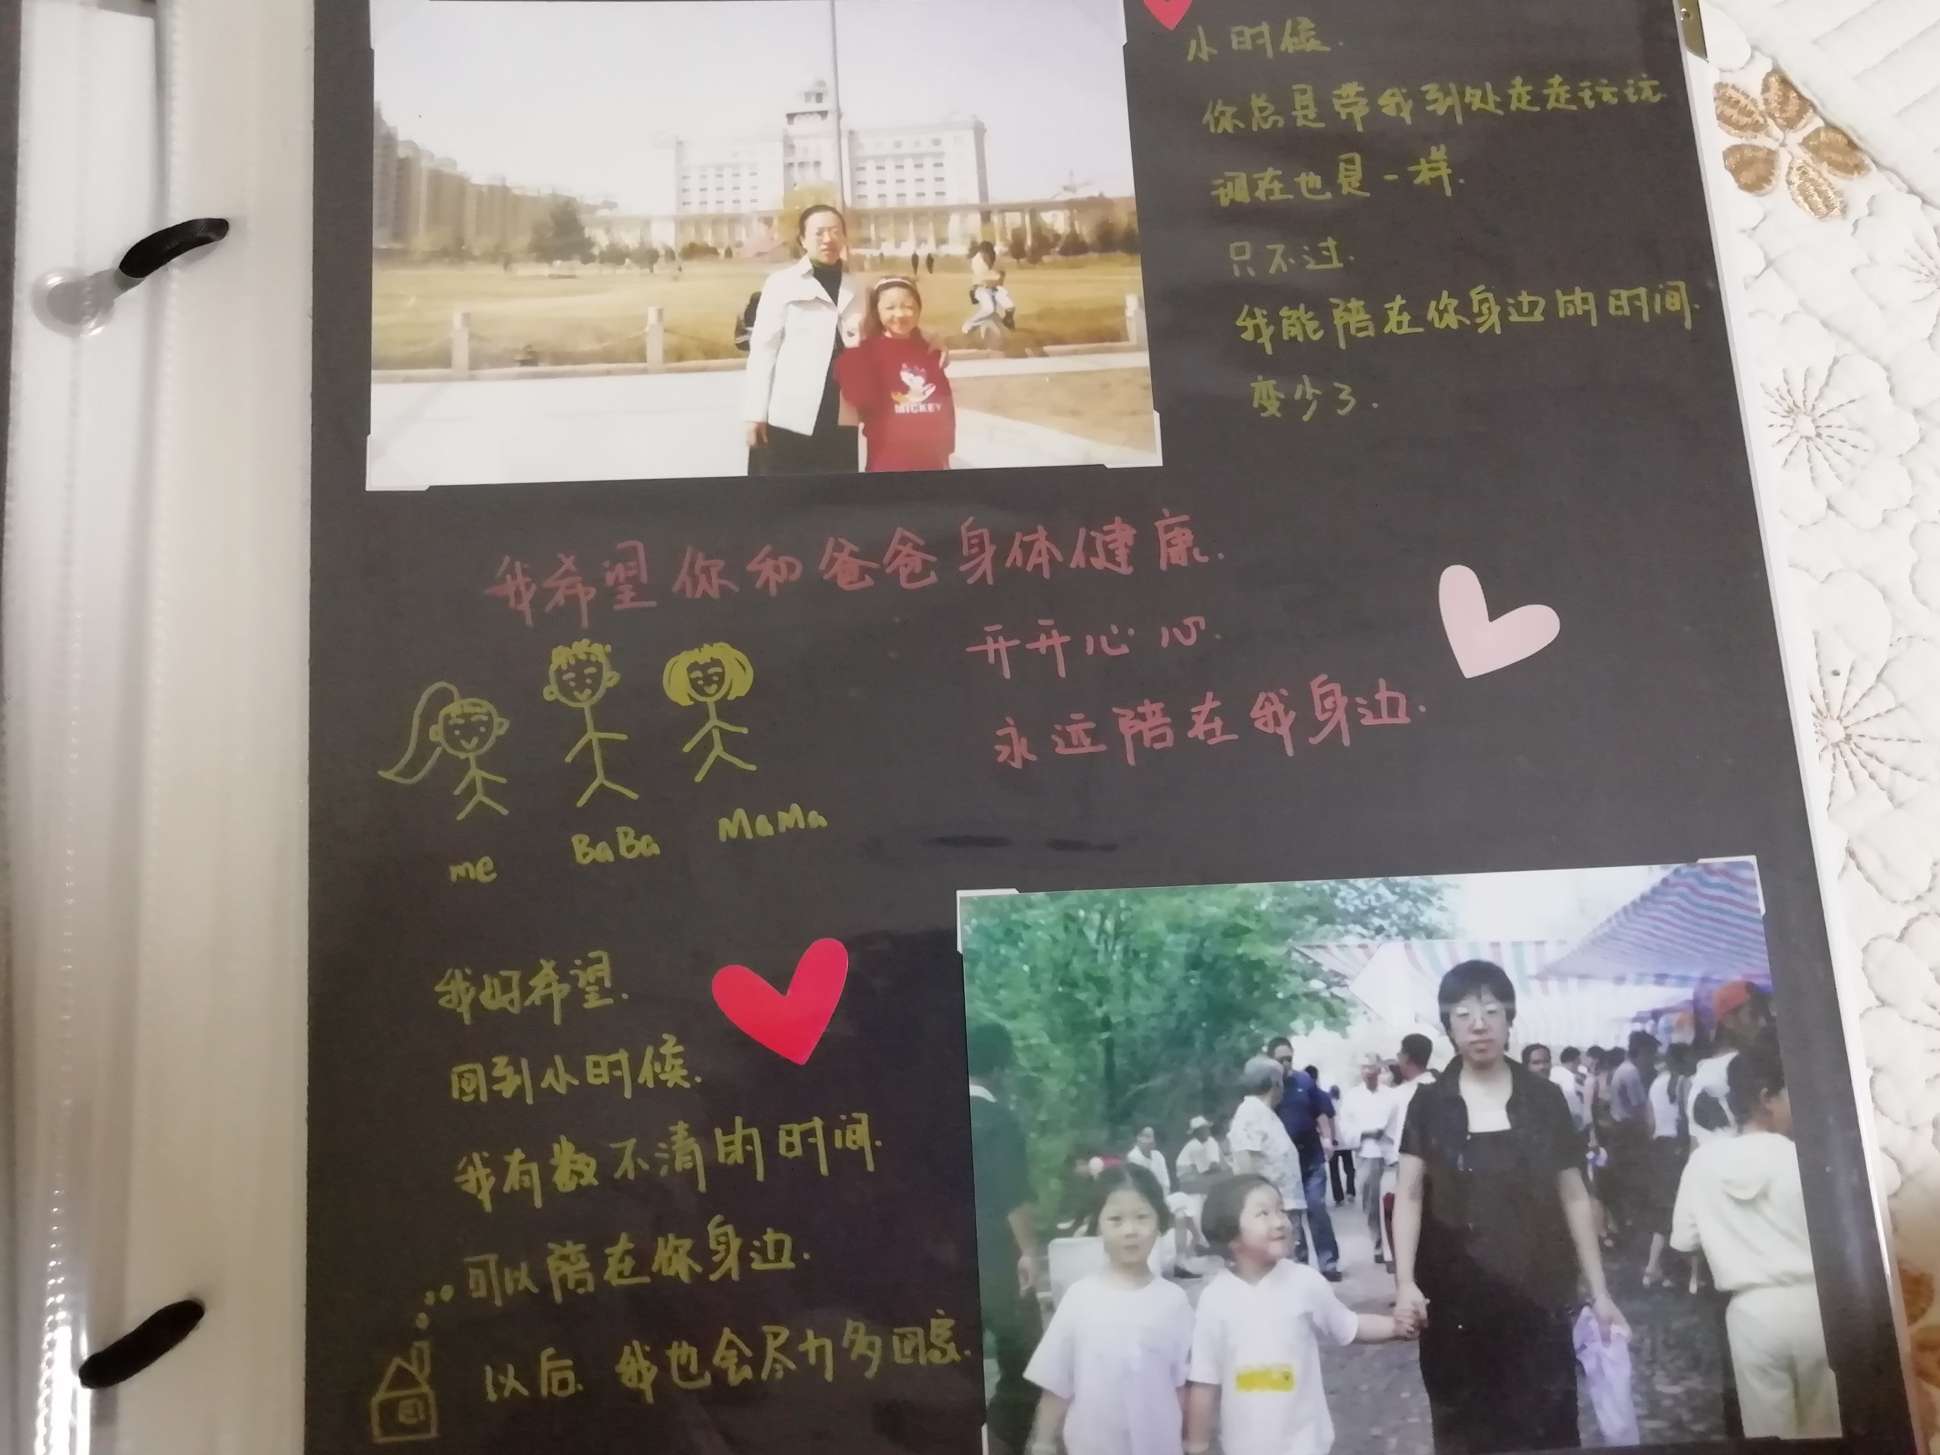 小时候.
你总是带我到处走走玩玩.
现在也是一样.
只不过.
我能陪在你身边的时间.
变少了.
MICKEY
我希望你和爸爸身体健康.
开开心心.
永远陪在我身边.
me
BaBa
MaMa
我好希望.
回到小时候.
我有数不清的时间.
可以陪在你身边.
以后.我也会尽力多回家.